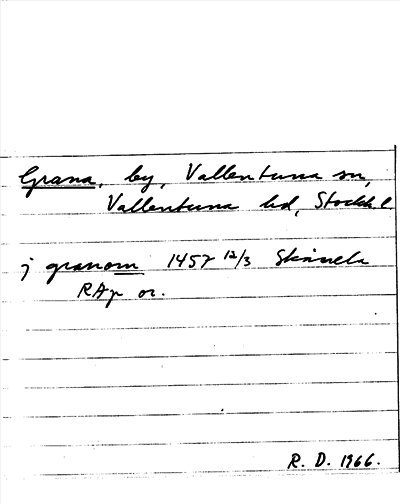 Grana, by, Vallentuna sn,
Vallentuna hd, Stockh l
j granom 1457 12/3 Skånela
RAp or.
R. D. 1966.